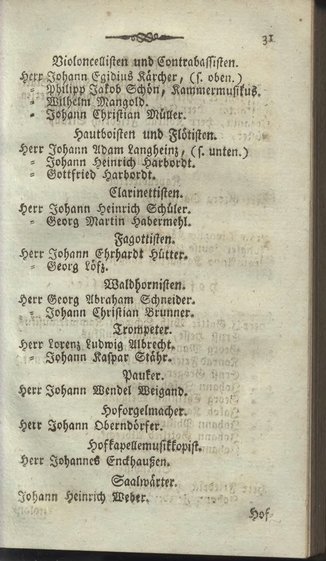 31
Violoncellisten und Contrabassisten.
Herr Johann Egidius Kärcher, (s. oben.)
= Philipp Jakob Schön, Kammermusikus.
= Wilhelm Mangold.
= Johann Christian Müller.
Hautboisten und Flötisten.
Herr Johann Adam Langheinz, (s. unten.)
= Johann Heinrich Harbordt.
= Gottfried Harbordt.
Clarinettisten.
Herr Johann Heinrich Schüler.
= Georg Martin Habermehl.
Fagottisten.
Herr Johann Ehrhardt Hütter.
= Georg Löfz.
Waldhornisten.
Herr Georg Abraham Schneider.
= Johann Christian Brunner.
Trompeter.
Herr Lorenz Ludwig Albrecht.
= Johann Kaspar Stähr.
Pauker.
Herr Johann Wendel Weigand.
Hoforgelmacher.
Herr Johann Oberndörfer.
Hofkapellemusikkopist.
Herr Johannes Enckhaußen.
Saalwärter.
Johann Heinrich Weber.
Hof-